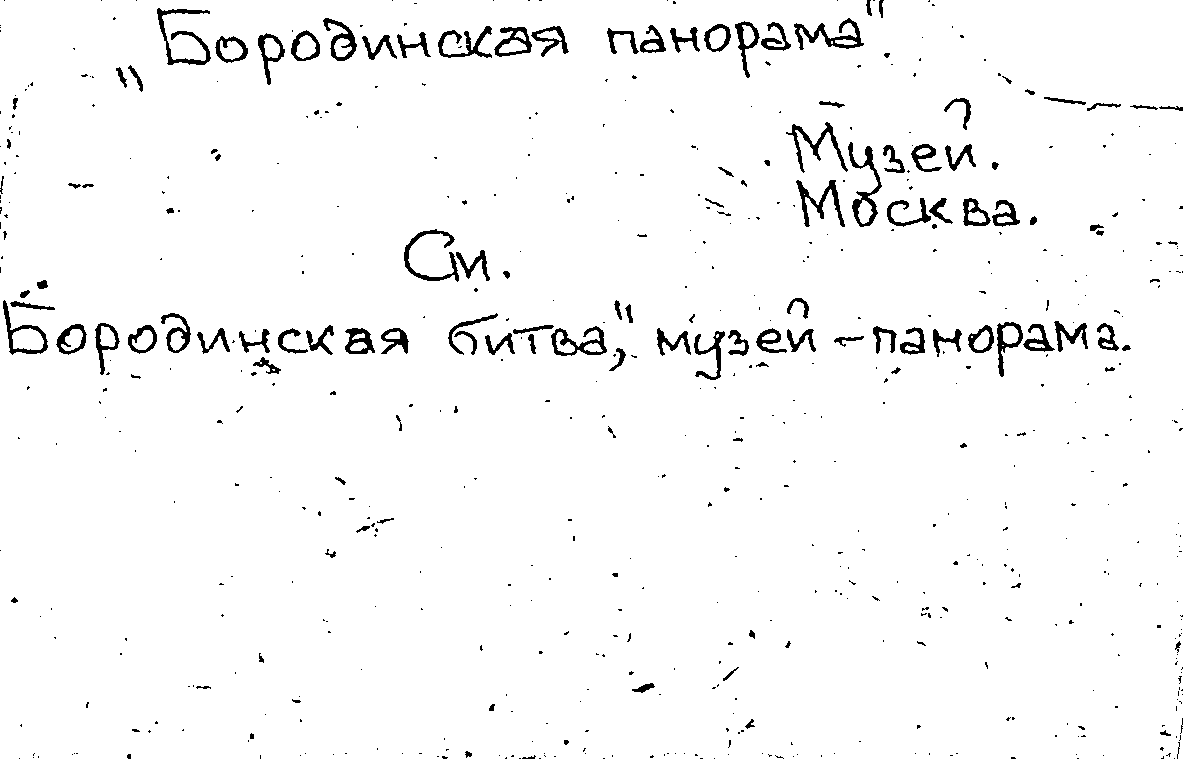 „Бородинская панорама".
Музей.
Москва.
См.
Бородинская битва," музей-панорама.